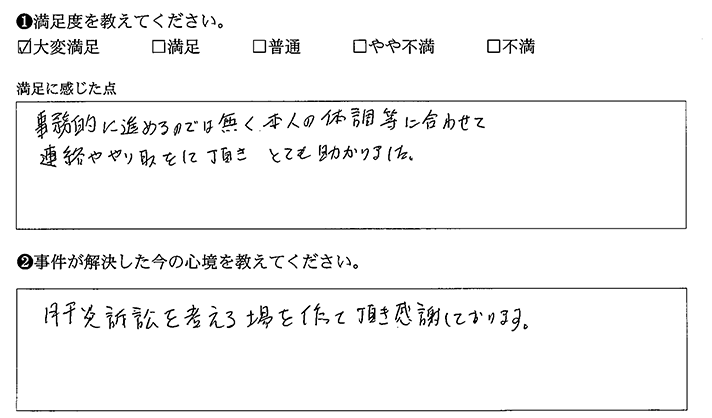 ❶満足度を教えてください。
☑大変満足 □満足 □普通 □やや不満 □不満
満足に感じた点
事務的に進めるのでは無く、本人の体調等に合わせて
連絡ややり取をして頂き とても助かりました。
❷事件が解決した今の心境を教えてください。
肝炎訴訟を考える場を作って頂き感謝しております。